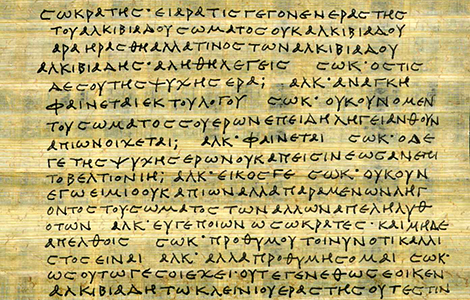 ϹΩΚΡΑΤΗϹ· ΕΙ ΑΡΑ ΤΙϹ ΓΕΓΟΝΕΝ ΕΡΑϹΤΗϹ
ΤΟΥ ΑΛΚΙΒΙΑΔΟΥ ϹΩΜΑΤΟϹ ΟΥΚ ΑΛΚΙΒΙΑΔΟΥ
ΑΡΑ ΗΡΑϹΘΗ ΑΛΛΑ ΤΙΝΟϹ ΤΩΝ ΑΛΚΙΒΙΑΔΟΥ
ΑΛΚΙΒΙΑΔΗϹ· ΑΛΗΘΗ ΛΕΓΕΙϹ ϹΩΚ· ΟϹΤΙϹ
ΔΕ ϹΟΥ ΤΗϹ ΨΥΧΗϹ ΕΡΑ; ΑΛΚ· ΑΝΑΓΚΗ
ΦΑΙΝΕΤΑΙ ΕΚ ΤΟΥ ΛΟΓΟΥ ϹΩΚ· ΟΥΚΟΥΝ Ο ΜΕΝ
ΤΟΥ ϹΩΜΑΤΟϹ ϹΟΥ ΕΡΩΝ ΕΠΕΙΔΗ ΛΗΓΕΙ ΑΝΘΟΥΝ
ΑΠΙΩΝ ΟΙΧΕΤΑΙ; ΑΛΚ· ΦΑΙΝΕΤΑΙ ϹΩΚ· Ο ΔΕ
ΓΕ ΤΗϹ ΨΥΧΗϹ ΕΡΩΝ ΟΥΚ ΑΠΕΙϹΙΝ ΕΩϹ ΑΝ ΕΠΙ
ΤΟ ΒΕΛΤΙΟΝ ΙΗ; ΑΛΚ· ΕΙΚΟϹ ΓΕ ϹΩΚ· ΟΥΚΟΥΝ
ΕΓΩ ΕΙΜΙ Ο ΟΥΚ ΑΠΙΩΝ ΑΛΛΑ ΠΑΡΑΜΕΝΩΝ ΛΗΓ
ΟΝΤΟϹ ΤΟΥ ϹΩΜΑΤΟϹ ΤΩΝ ΑΛΛΩΝ ΑΠΕΛΗΛΥΘ
ΟΤΩΝ ΑΛΚ· ΕΥ ΓΕ ΠΟΙΩΝ Ω ϹΩΚΡΑΤΕϹ· ΚΑΙ ΜΗΔΕ
ΑΠΕΛΘΟΙϹ ϹΩΚ· ΠΡΟΘΥΜΟΥ ΤΟΙΝΥΝ ΟΤΙ ΚΑΛΛΙ
ϹΤΟϹ ΕΙΝΑΙ ΑΛΚ· ΑΛΛΑ ΠΡΟΘΥΜΗϹΟΜΑΙ ϹΩΚ·
ΩϹ ΟΥΤΩ ΓΕ ϹΟΙ ΕΧΕΙ· ΟΥΤ ΕΓΕΝΕΘ ΩϹ ΕΟΙΚΕΝ
ΑΛΚΙΒΙΑΔΗ ΤΩ ΚΛΕΙΝΙΟΥ ΕΡΑϹΤΗϹ ΟΥΤ ΕϹΤΙΝ